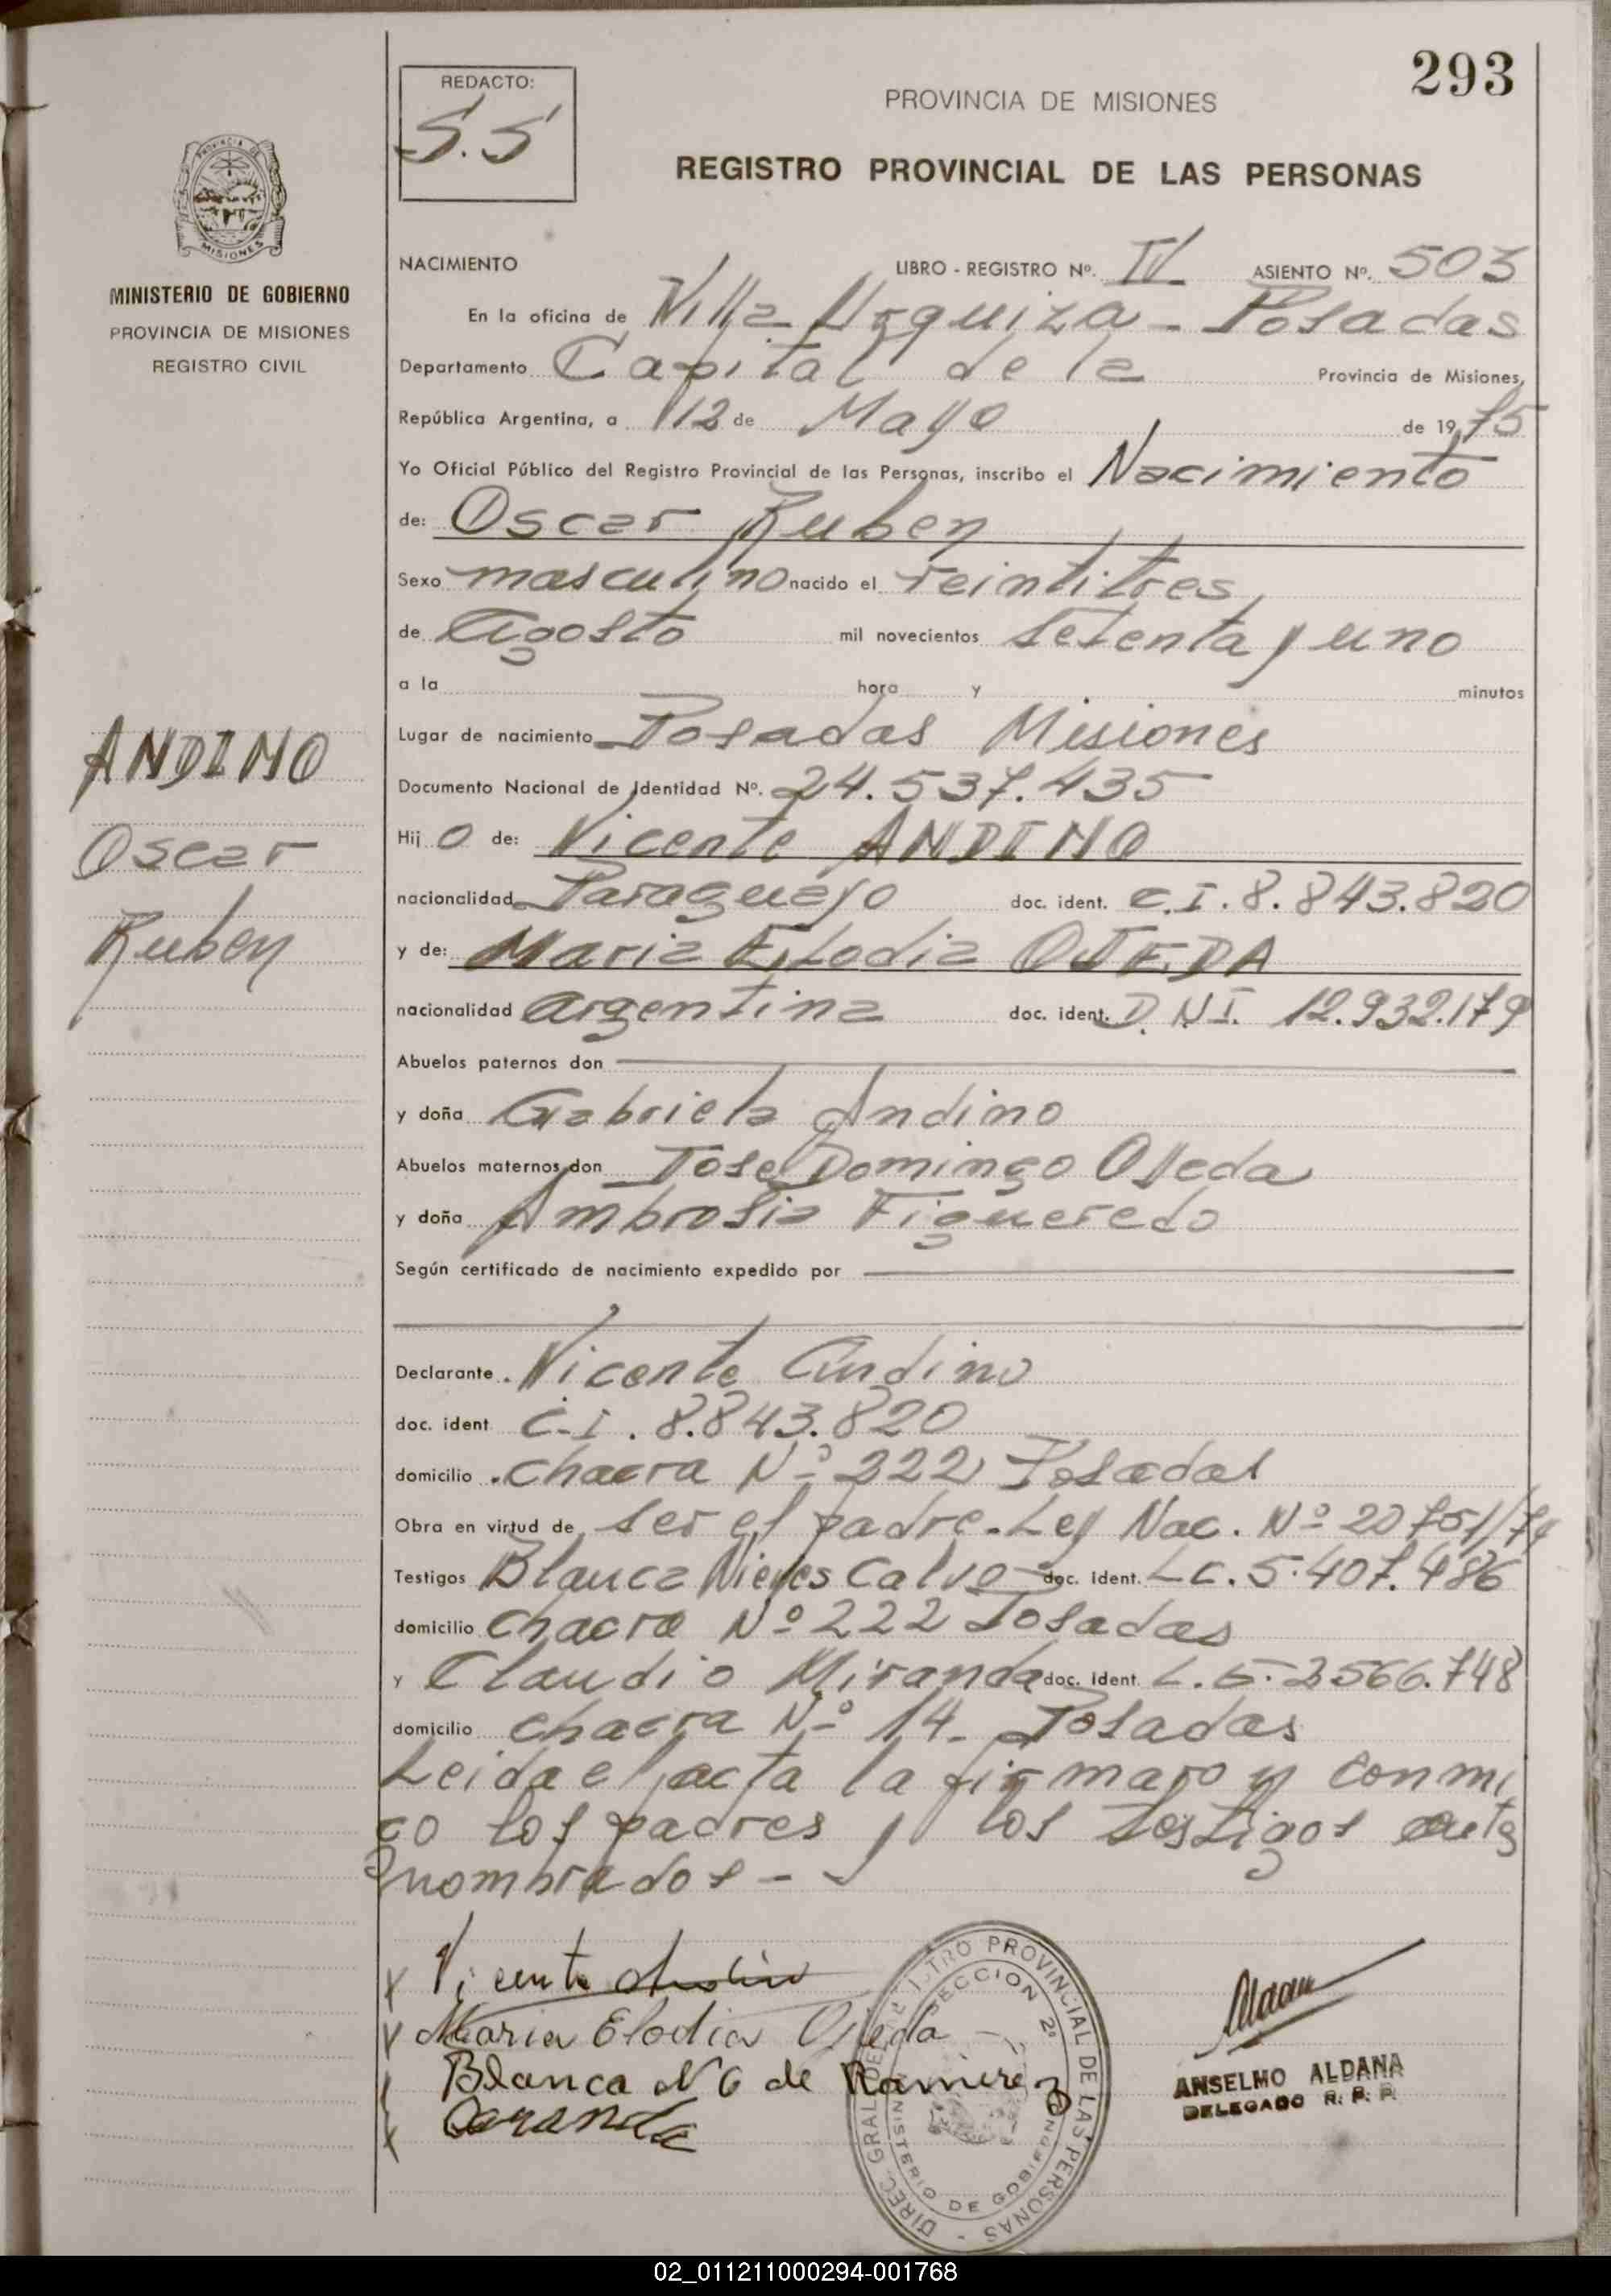 293
REDACTO:
S.S
PROVINCIA DE MISIONES
REGISTRO PROVINCIAL DE LAS PERSONAS
MINISTERIO DE GOBIERNO
PROVINCIA DE MISIONES
REGISTRO CIVIL
NACIMIENTO LIBRO - REGISTRO Nº. IV ASIENTO Nº. 503
En la oficina de Villa Urquiza - Posadas
Departamento Capital de la Provincia de Misiones,
República Argentina, a 12 de Mayo de 1975
Yo Oficial Público del Registro Provincial de las Personas, inscribo el Nacimiento
de: Oscar Ruben
Sexo masculino nacido el veintitres
de Agosto mil novecientos setenta y uno
a la hora y minutos
Lugar de nacimiento Posadas Misiones
ANDINO
Oscar
Ruben
Documento Nacional de Identidad Nº. 24.537.435
Hij o de: Vicente ANDINO
nacionalidad Paraguayo doc. ident. C.I. 8.843.820
y de: Maria Elodia OJEDA
nacionalidad argentina doc. ident. D.N.I. 12.932.179
Abuelos paternos don
y doña Gabriela Andino
Abuelos maternos don Jose Domingo Ojeda
y doña Ambrosia Figueredo
Según certificado de nacimiento expedido por
Declarante Vicente Andino
doc. ident C.I. 8.843.820
domicilio chacra Nº 222 Posadas
Obra en virtud de ser el padre. Ley Nac. Nº 20751/74
Testigos Blanca Nieves Calvo doc. ident. L.C. 5.407.486
domicilio chacra Nº 222 Posadas
y Claudio Miranda doc. ident. L.E. 2566.748
domicilio chacra Nº 14 - Posadas
Leida el acta la firmaron conmi
go los padres y los testigos ante
nombrados - -
Vicente Andino
Maria Elodia Ojeda
Blanca N C de Ramirez
DIREC. GRAL. DEL REGISTRO PROVINCIAL DE LAS PERSONAS -
SECCION 2ª
MINISTERIO DE GOBIERNO
ANSELMO ALDANA
DELEGADO R. P. P.
02_011211000294-001768